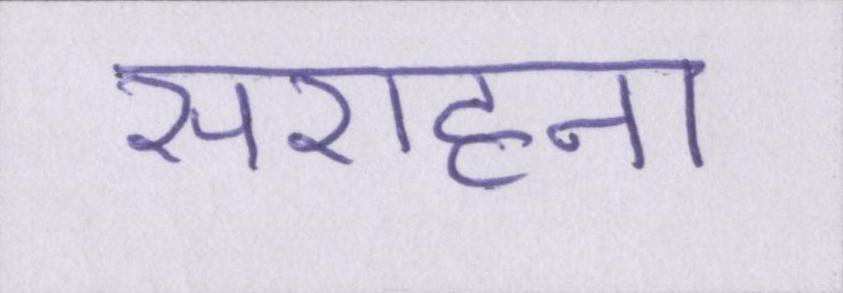 सराहना